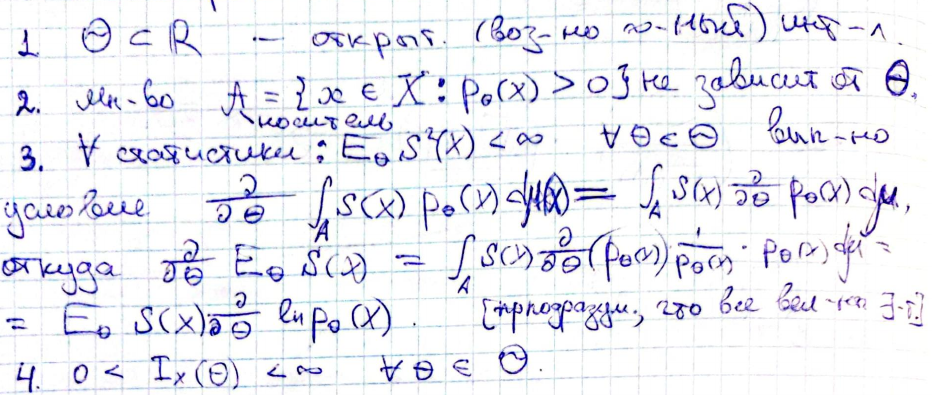 1. Θ ⊂ ℝ — открыт. (воз-но ∞-ный) инт-л.
2. Мн-во A = {x ∈ X : p_θ(x) > 0} не зависит от Θ.
носитель
3. ∀ статистики : E_θ S²(X) < ∞ ∀ θ ∈ Θ вып-но
условие ∂/∂θ ∫_A S(x) p_θ(x) dμ(x) = ∫_A S(x) ∂/∂θ p_θ(x) dμ,
откуда ∂/∂θ E_θ S(X) = ∫_A S(x) ∂/∂θ (p_θ(x)) 1/p_θ(x) · p_θ(x) dμ =
= E_θ S(X) ∂/∂θ ln p_θ(X). [прподразум., что все вел-ны ∃-т]
4. 0 < I_X(θ) < ∞ ∀ θ ∈ Θ.